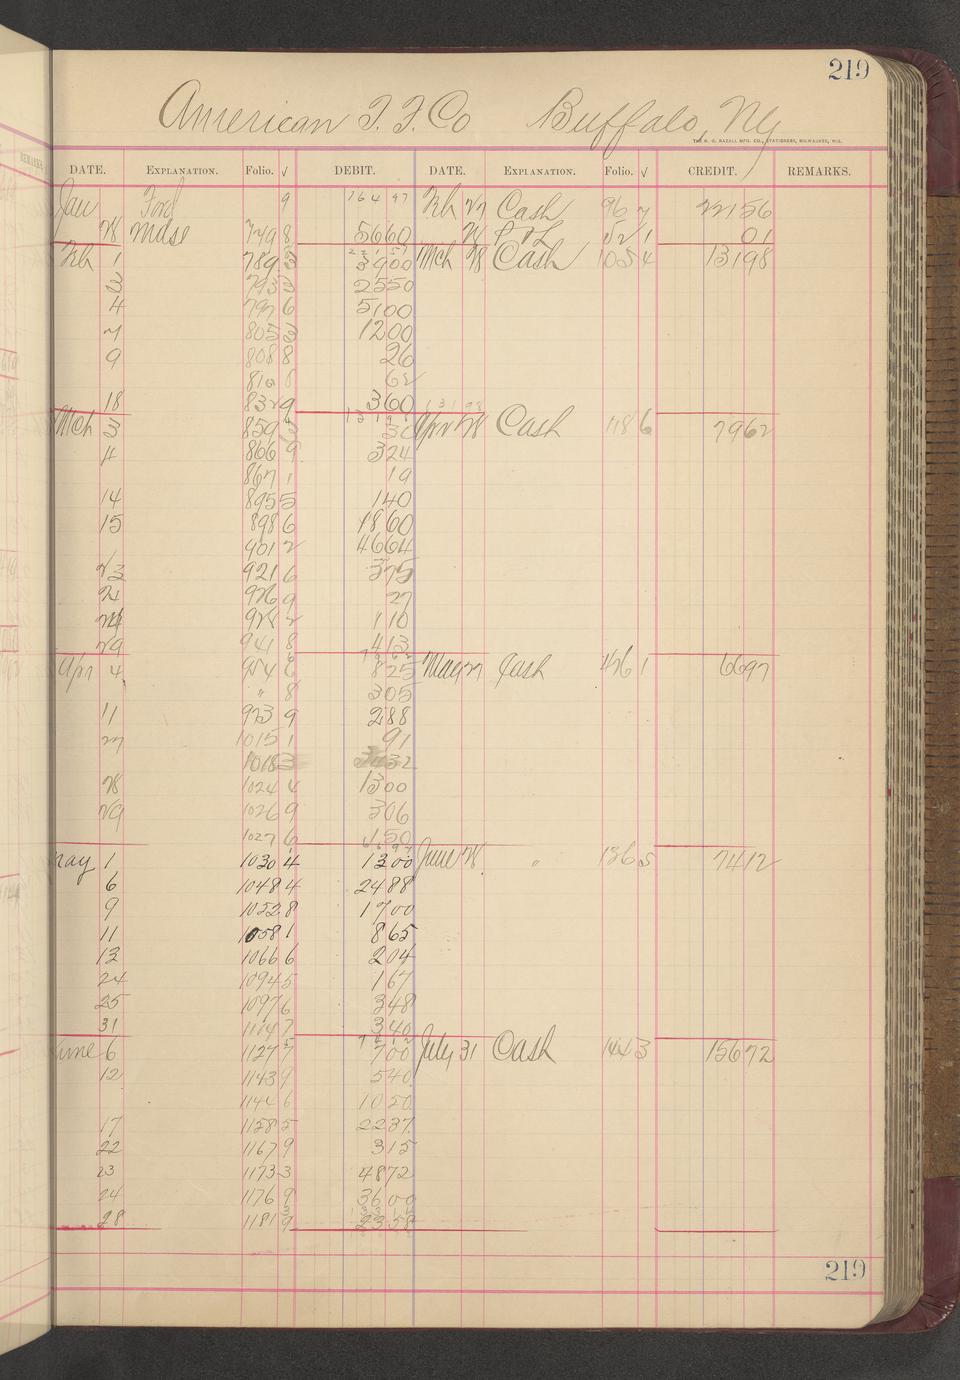 219
American T. F. Co Buffalo, Ny
THE H. G. RAZALL MFG. CO., STATIONERS, MILWAUKEE, WIS.
DATE. EXPLANATION. Folio. √ DEBIT. DATE. EXPLANATION. Folio. √ CREDIT. REMARKS.
Jan Ford 9 164 97 Feb 27 Cash 96 7 221 56
28 Mdse 749 8 56 60 28 P & L 121 01
Feb 1 789 3 39 00 Mch 28 Cash 105 4 131 98
3 793 3 25 50
4 797 6 51 00
7 805 3 12 00
9 808 8 26
810 8 62
18 832 9 3 60 131 98
Mch 3 859 3 30 Apr 28 Cash 118 6 79 62
4 866 9 3 24
867 1 19
14 895 5 1 40
15 898 6 18 60
901 2 46 64
23 921 6 3 75
24 926 9 27
1 10
29 941 8 4 13
Apr 4 954 6 8 25 May 27 Cash 126 1 66 97
" 8 3 05
11 973 9 2 88
27 1015 1 91
1018 3 32
28 1024 4 13 00
29 1026 9 3 06
1027 6 1 50
May 1 1030 4 13 00 June 28 " 136 5 74 12
6 1048 4 24 88
9 1052 8 17 00
11 1058 1 8 65
13 1066 6 2 04
24 1094 5 1 67
25 1097 6 3 48
31 1114 7 3 40
June 6 1127 7 7 00 July 31 Cash 144 3 156 72
12 1143 9 5 40
1144 6 10 50
17 1158 5 22 37
22 1167 9 3 15
23 1173 3 48 72
24 1176 9 36 00
28 1181 9 23 58
219